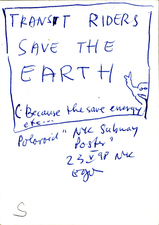 TRANSIT RIDERS
SAVE THE
EARTH
(Because the save energy
etc...
Polaroid "NYC Subway
Poster"
23 V 98 NYC
S